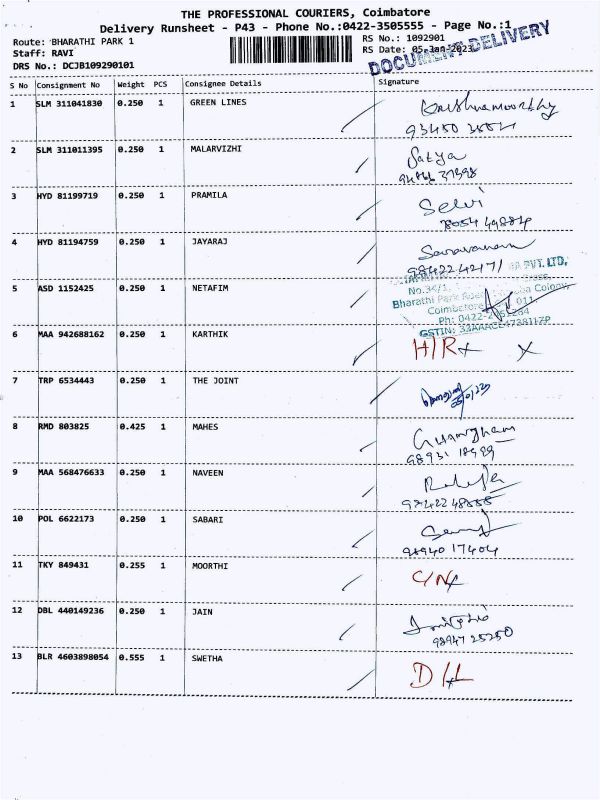 THE PROFESSIONAL COURIERS, Coimbatore
Delivery Runsheet - P43 - Phone No.:0422-3505555 - Page No.:1
Route: BHARATHI PARK 1
RS No.: 1092901
Staff: RAVI
RS Date: 05-Jan-2023
DRS No.: DCJB109290101
DOCUMENT DELIVERY
S No Consignment No Weight PCS Consignee Details Signature
1 SLM 311041830 0.250 1 GREEN LINES
2 SLM 311011395 0.250 1 MALARVIZHI Satya
3 HYD 81199719 0.250 1 PRAMILA Selvi
4 HYD 81194759 0.250 1 JAYARAJ Saravanan
PVT. LTD.
5 ASD 1152425 0.250 1 NETAFIM
No.34/1, Colony,
Bharathi Park
Coimbatore 011.
Ph: 0422-
GSTIN:
6 MAA 942688162 0.250 1 KARTHIK H/R
7 TRP 6534443 0.250 1 THE JOINT
8 RMD 803825 0.425 1 MAHES
9 MAA 568476633 0.250 1 NAVEEN
10 POL 6622173 0.250 1 SABARI
98940 17404
11 TKY 849431 0.255 1 MOORTHI
12 DBL 440149236 0.250 1 JAIN
98947 25250
13 BLR 4603898054 0.555 1 SWETHA